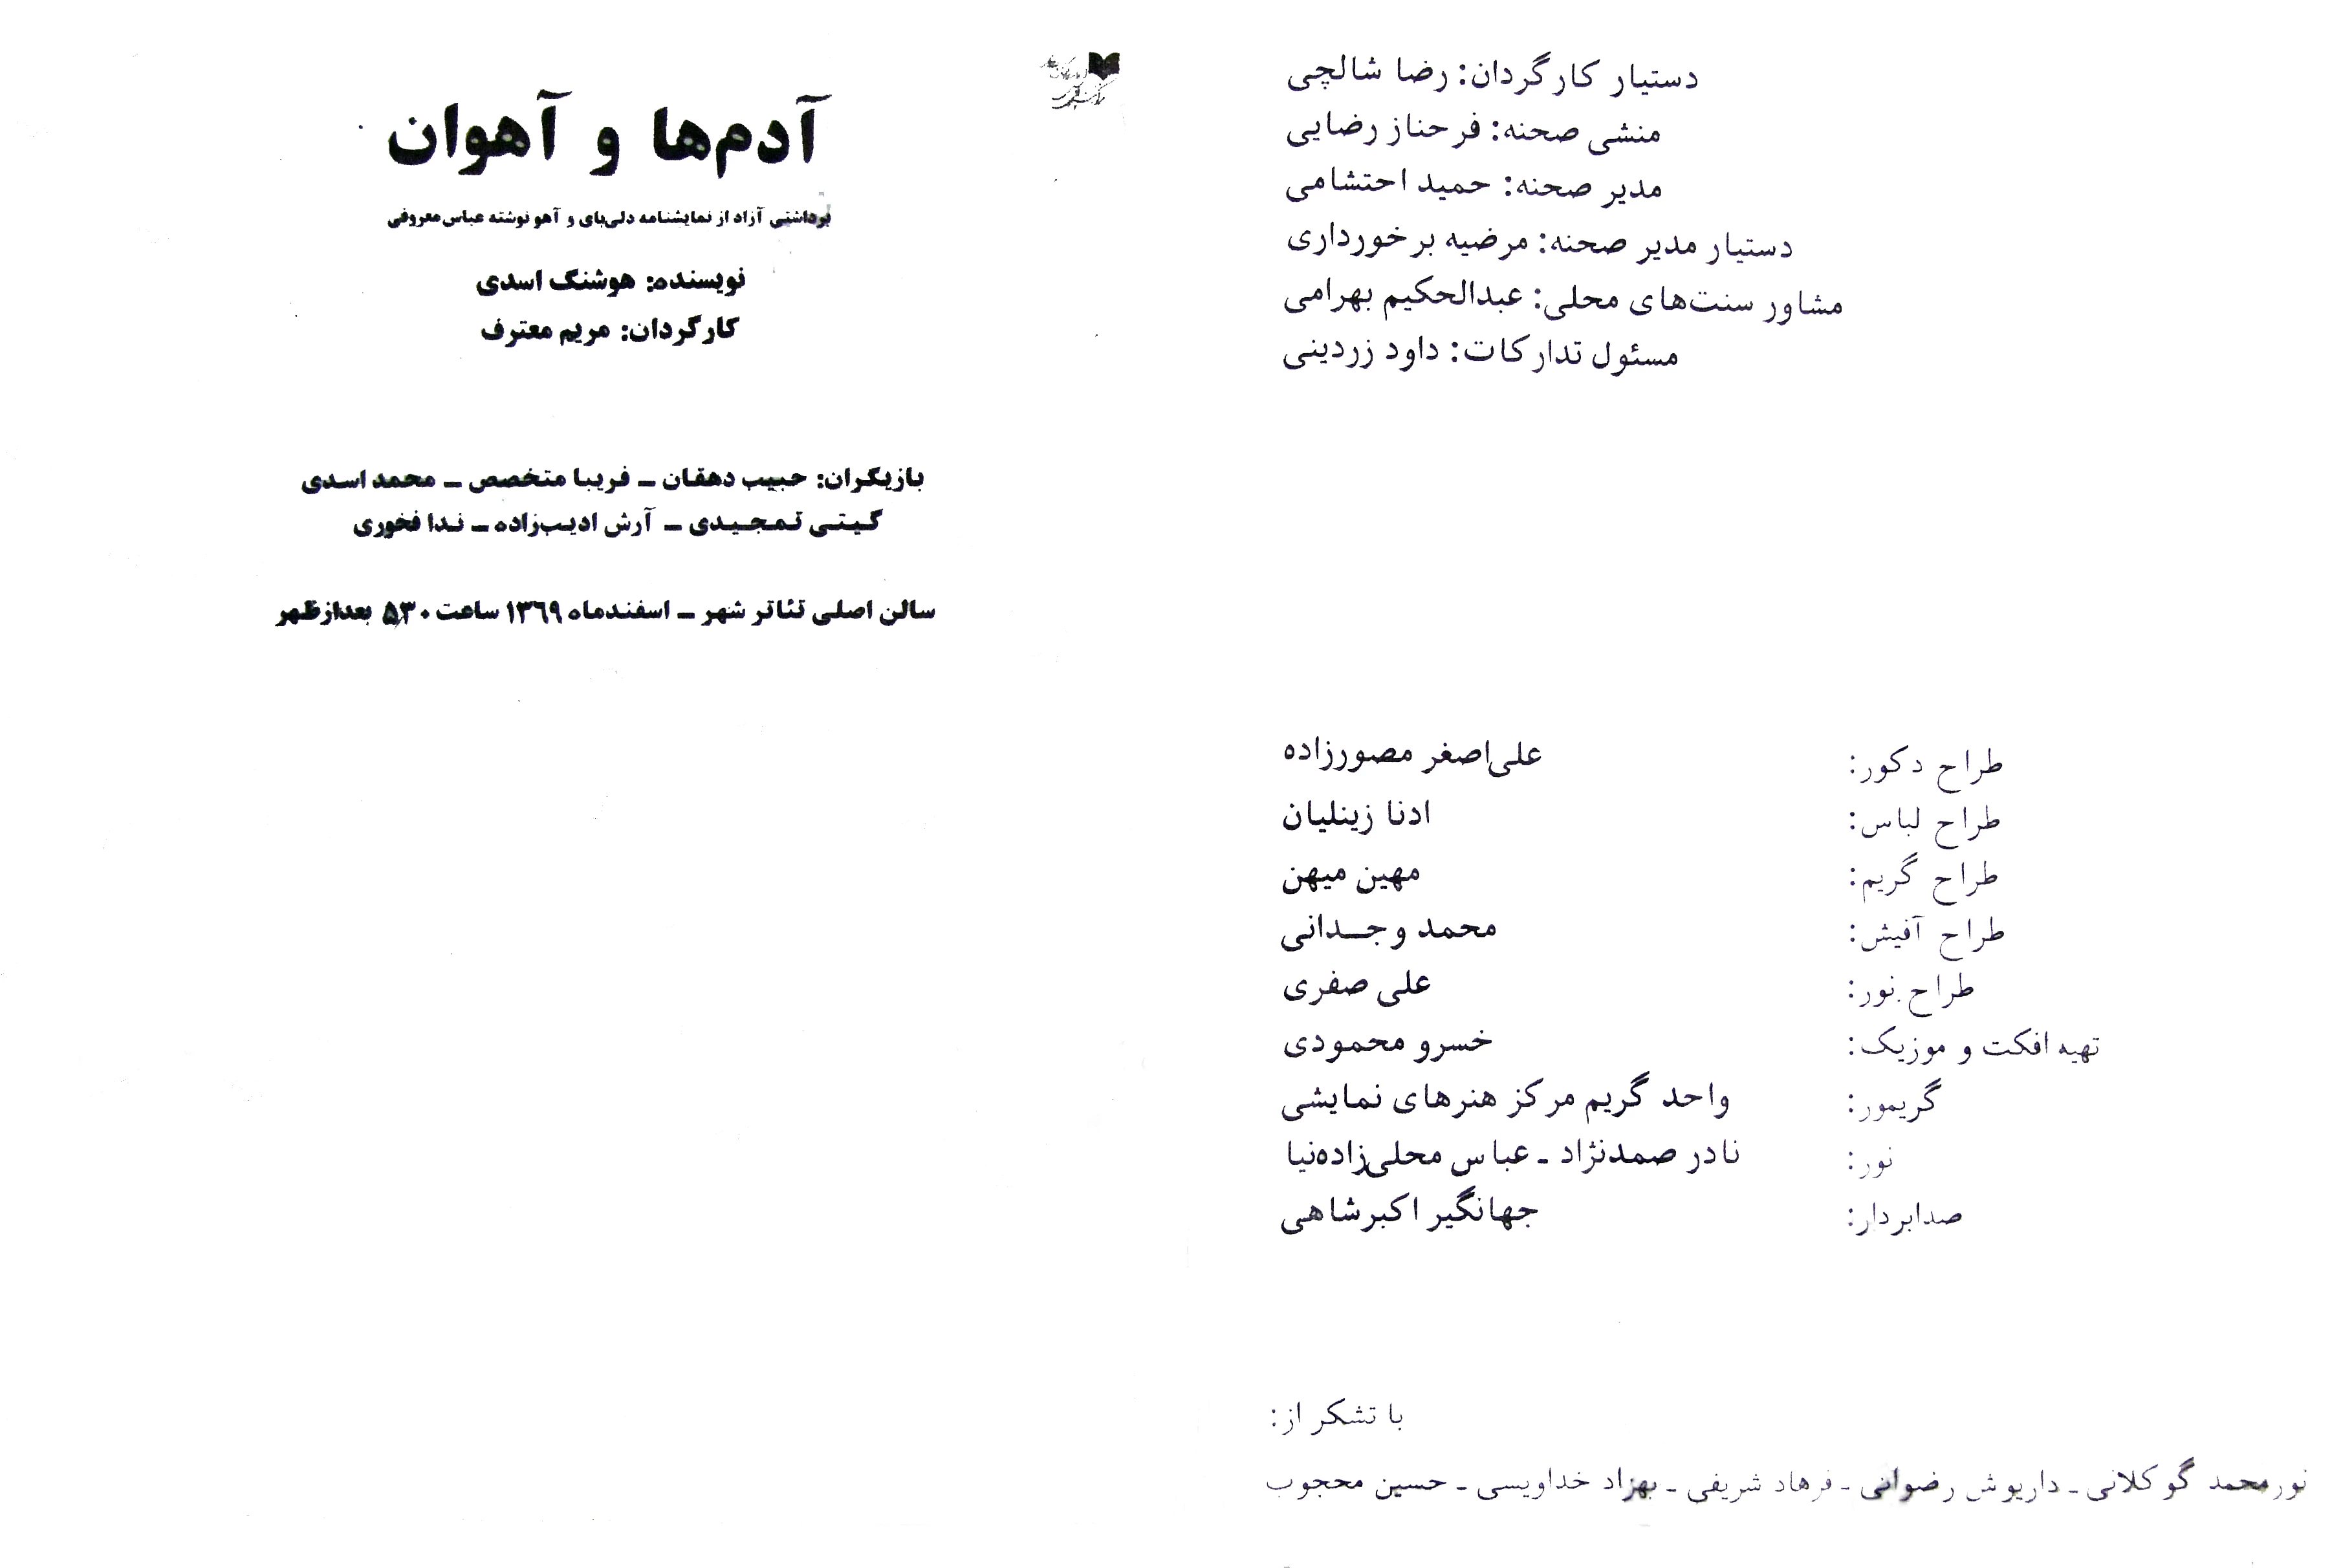 آدم‌ها و آهوان
برداشتی آزاد از نمایشنامه دلی‌بای و آهو نوشته عباس معروفی
نویسنده: هوشنگ اسدی
کارگردان: مریم معترف
بازیگران: حبیب دهقان ـ فریبا متخصص ـ محمد اسدی
گیتی تمجیدی ـ آرش ادیب‌زاده ـ ندا فخوری
سالن اصلی تئاتر شهر ـ اسفندماه ۱۳۶۹ ساعت ۵٫۳۰ بعدازظهر
دستیار کارگردان: رضا شالچی
منشی صحنه: فرحناز رضایی
مدیر صحنه: حمید احتشامی
دستیار مدیر صحنه: مرضیه برخورداری
مشاور سنت‌های محلی: عبدالحکیم بهرامی
مسئول تدارکات: داود زردینی
طراح دکور: علی‌اصغر مصورزاده
طراح لباس: ادنا زینلیان
طراح گریم: مهین میهن
طراح آفیش: محمد وجدانی
طراح نور: علی صفری
تهیه افکت و موزیک: خسرو محمودی
گریمور: واحد گریم مرکز هنرهای نمایشی
نور: نادر صمدنژاد ـ عباس محلی‌زاده‌نیا
صدابردار: جهانگیر اکبرشاهی
با تشکر از:
نورمحمد گوکلانی ـ داریوش رضوانی ـ فرهاد شریفی ـ بهزاد خداویسی ـ حسین محجوب